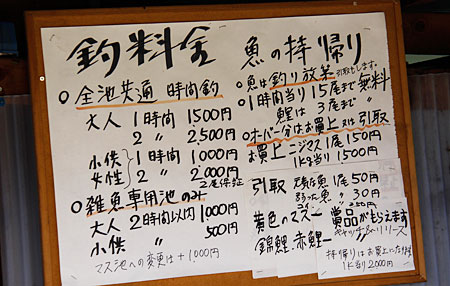 釣料金
○全池共通 時間釣
大人 1時間 1500円
〃 2 〃 2,500円
小供 女性 1時間 1000円
2 〃 2,000円
2尾保証
○雑魚専用池のみ
大人 2時間以内 1000円
小供 〃 500円
マス池への変更は+1000円
魚の持帰り
○魚は釣り放第 引取もします。
○1時間当り 15尾まで無料
鯉は 3尾まで 〃
○オーバー分はお買上又は引取
お買上 ニジマス1尾 150円
1k当り 1500円
引取 元気な魚 1尾 50円
弱った魚 〃 30円
黄色のマス 賞品がもらえます
錦鯉、赤鯉 キャッチ&リリース
持帰りはお買上になります
1k当り 2000円